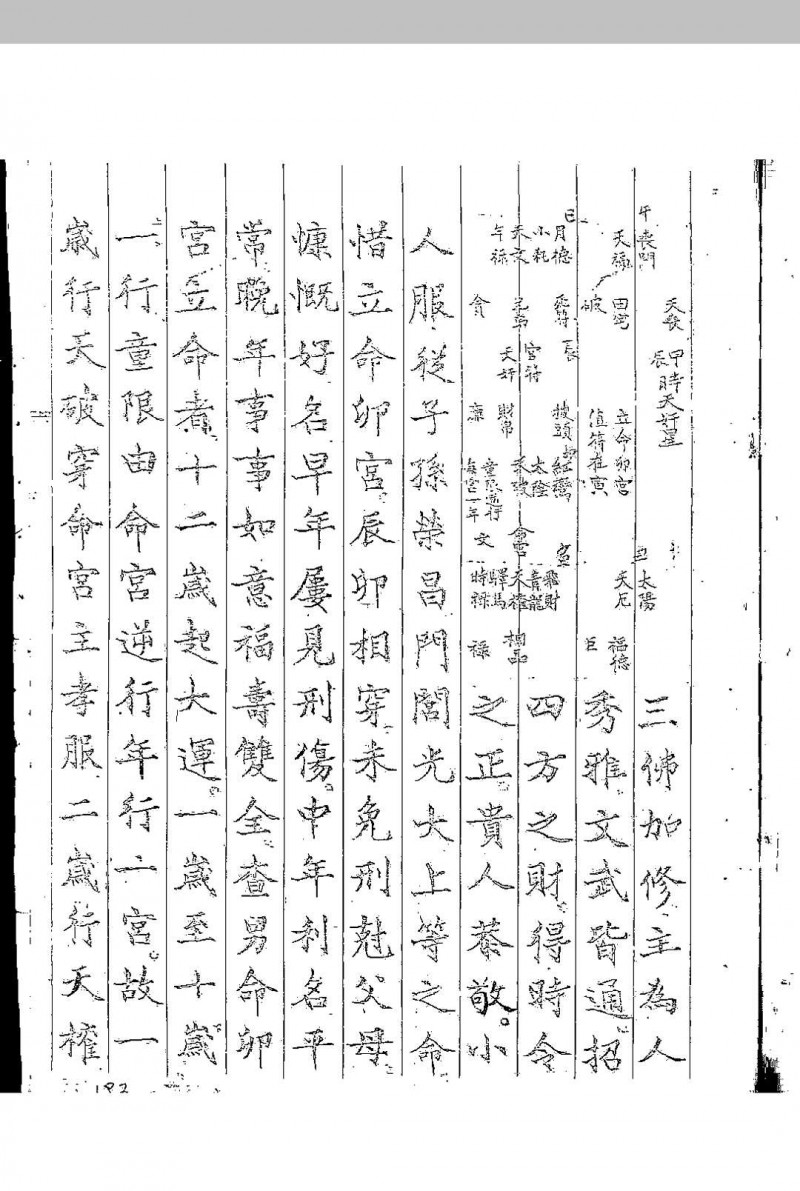 三佛加修主為人
秀雅文武皆通招
四方之財得時令
之正貴人恭敬。小
人服從子孫榮昌門閭光大上等之命
惜立命卯宮辰卯相穿未免刑尅父母
慷慨好名早年屢見刑傷。中年利名平
常晚年事事如意福壽雙全查男命卯
宮立命者十二歲起大運。一歲至十歲
一行童限由命宮逆行年行一宮。故一
歲行天破穿命宮主孝服二歲行天權
午 喪門
天福
田宅
破
甲時天奸星
辰
立命卯宮
值符在寅
丑
太陽
天厄
福德
巨
巳 月德
小耗
天文
午祿
貪
官符
天奸
披頭
財帛
廉
紅鸞
太陰
天破
童限逆行
每宮一年
文
命宮
飛財
青龍
天權
驛馬
時祿
相品
祿
182